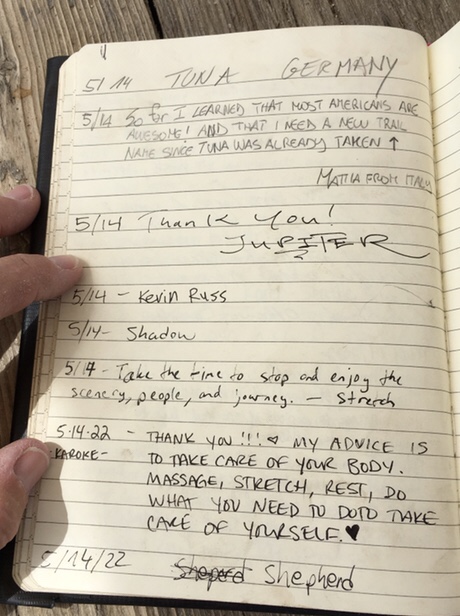 5/14 TUNA GERMANY
5/14 So far I LEARNED THAT MOST AMERICANS ARE
AWESOME! AND THAT I NEED A NEW TRAIL
NAME SINCE TUNA WAS ALREADY TAKEN ↑
MATTIA FROM ITALY
5/14 Thank You!
JUPITER
5/14 - Kevin Russ
5/14 - Shadow
5/14 - Take the time to stop and enjoy the
scenery, people, and journey. - Stretch
5.14.22 - THANK YOU!!! MY ADVICE IS
-KAROKE- TO TAKE CARE OF YOUR BODY.
MASSAGE, STRETCH, REST, DO
WHAT YOU NEED TO DO TO TAKE
CARE OF YOURSELF. ♥
5/14/22 Shepherd